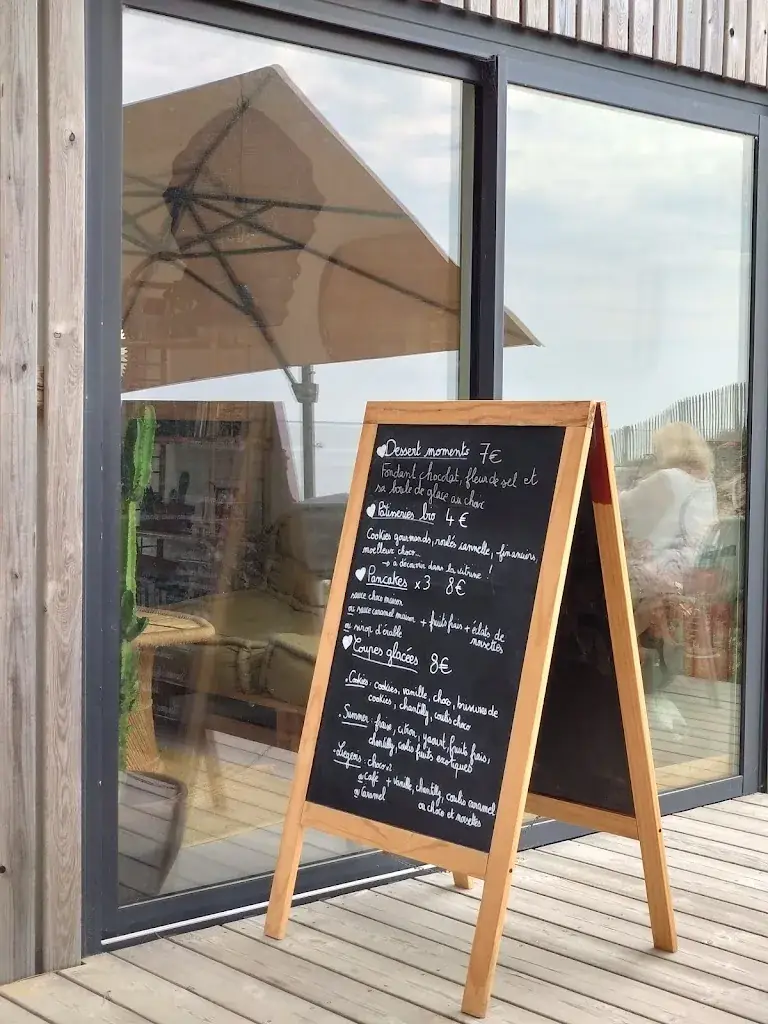 Dessert moments 7€
Fondant chocolat, fleur de sel et
sa boule de glace au choix
Pâtisseries bio 4€
Cookies gourmands, roulés cannelle, financiers,
moelleux choco...
→ à découvrir dans la vitrine !
Pancakes x3 8€
sauce choco maison
ou sauce caramel maison + fruits frais + éclats de
ou sirop d'érable noisettes
Coupes glacées 8€
. Cookies : cookies, vanille, choco, brisures de
cookies, chantilly, coulis choco
. Summer : fraise, citron, yaourt, fruits frais,
chantilly, coulis fruits exotiques
. Liégeois : choco
ou Café + vanille, chantilly, coulis caramel
ou Caramel ou choco et noisettes